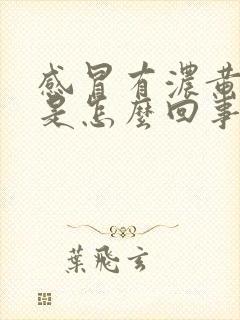 感冒有濃黃
是怎麼回事
葉飛玄